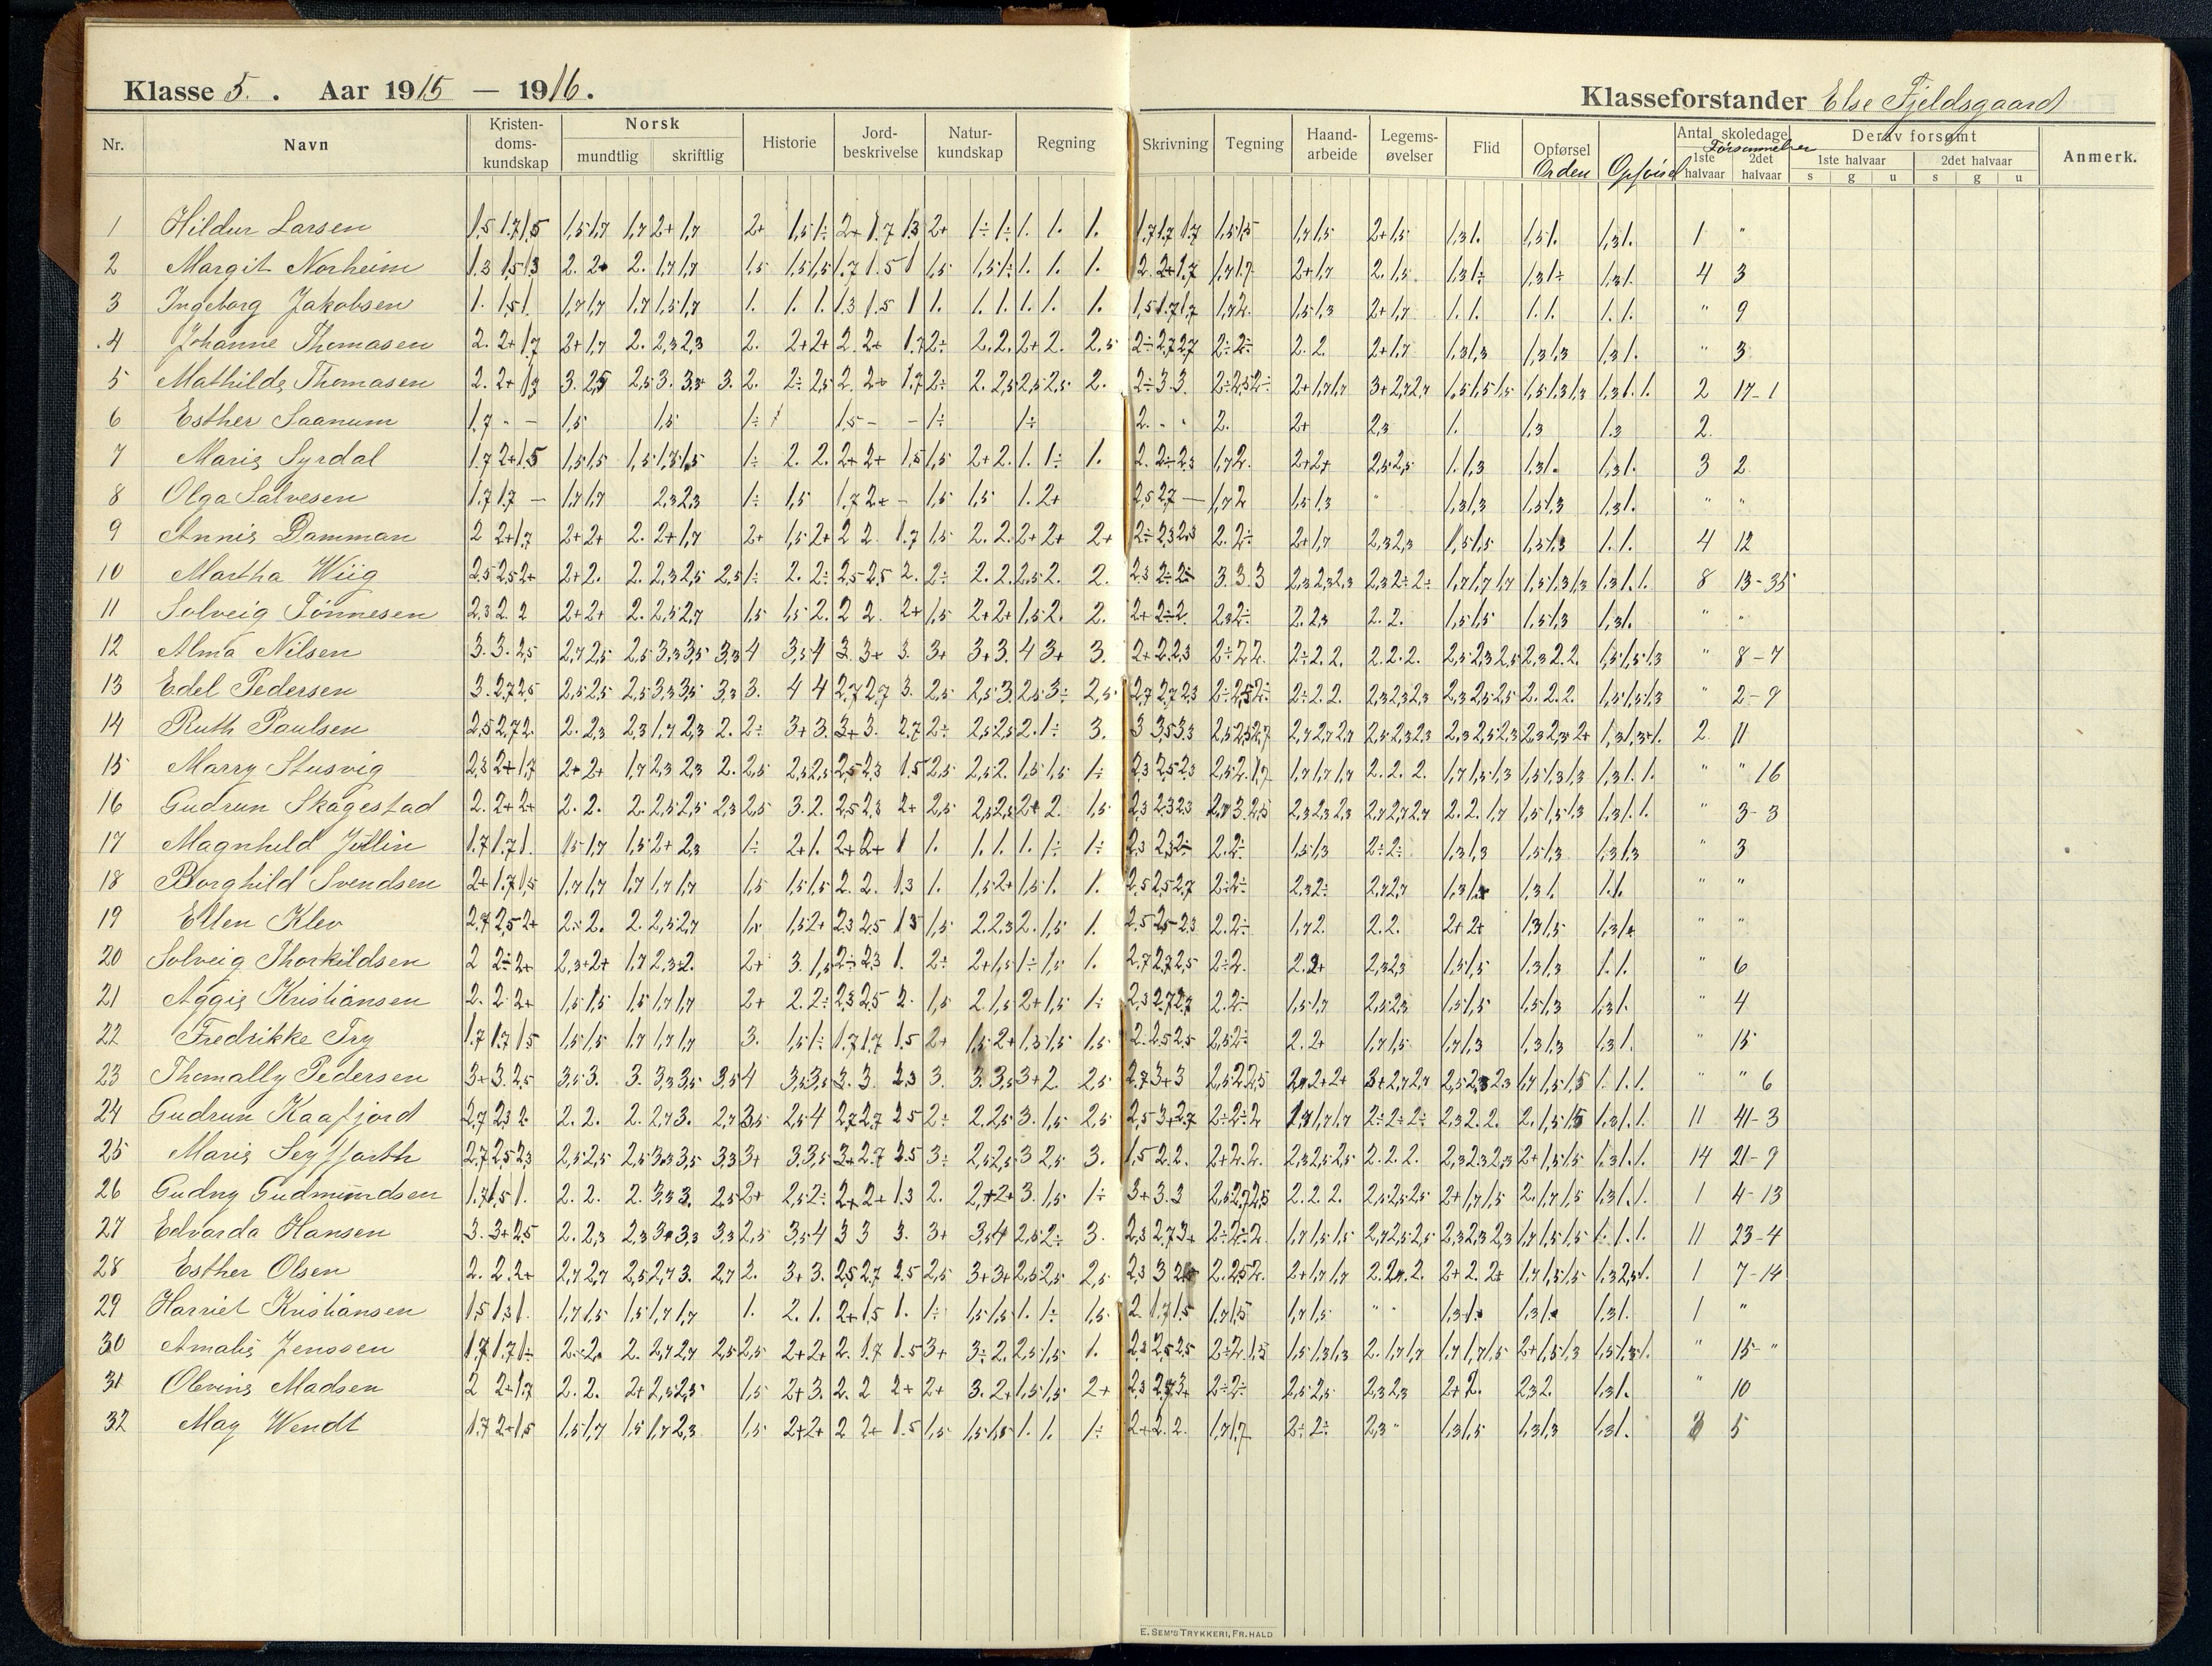 Klasse 5. . Aar 1915 — 1916.
Klasseforstander Else Fjeldsgaard
Nr. Navn Kristendomskundskap Norsk mundtlig skriftlig Historie Jordbeskrivelse Naturkundskap Regning Skrivning Tegning Haandarbeide Legemsøvelser Flid Opførsel Orden Opførsel Antal skoledage Forsømmelser 1ste halvaar 2det halvaar Derav forsømt 1ste halvaar s g u 2det halvaar s g u Anmerk.
1 Hildur Larsen 1,5 1,7 1,5 1,5 1,7 1,7 2+ 1,7 2+ 1,5 1÷ 2+ 1.7 1.3 2+ 1÷ 1÷ 1. 1. 1. 1,7 1,7 1,7 1,5 1,5 1,7 1,5 2+ 1,5 1,3 1. 1,5 1. 1,3 1. 1 "
2 Margit Norheim 1.3 1,5 1,3 2. 2+ 2. 1,7 1,7 1,5 1,5 1,5 1.7 1.5 1 1,5 1,5 1÷ 1. 1. 1. 2. 2+ 1,7 1,7 1,7 2+ 1,7 2. 1,5 1,3 1÷ 1,3 1÷ 1,3 1. 4 3
3 Ingeborg Jakobsen 1. 1,5 1. 1,7 1,7 1,7 1,5 1,7 1. 1. 1. 1.3 1.5 1 1. 1. 1. 1. 1. 1. 1,5 1,7 1,7 1,7 2. 1,5 1,3 2+ 1,7 1. 1. 1. 1. 1. 1. " 9
4 Johanne Thomasen 2. 2+ 1,7 2+ 1,7 2. 2,3 2,3 2. 2+ 2+ 2. 2+ 1.7 2÷ 2. 2. 2+ 2. 2,5 2÷ 2,7 2,7 2÷ 2÷ 2. 2. 2+ 1,7 1,3 1,3 1,3 1,3 1,3 1. " 3
5 Mathilde Thomasen 2. 2+ 1,3 3. 2,5 2,5 3. 3,3 3. 2. 2÷ 2,5 2. 2+ 1.7 2÷ 2. 2,5 2,5 2,5 2. 2÷ 3. 3. 2÷ 2,5 2÷ 2+ 1,7 1,7 3+ 2,7 2,7 1,5 1,5 1,5 1,5 1,3 1,3 1,3 1. 1. 2 17-1
6 Esther Saanum 1,7 - - 1,5 1,5 1÷ 1,5 - - 1÷ 1÷ 2. - - 2. 2+ 2,3 1. 1,3 1.3 2.
7 Marie Syrdal 1.7 2+ 1.5 1,5 1,5 1,5 1,3 1,5 1÷ 2. 2. 2+ 2+ 1,5 1,5 2+ 2. 1. 1÷ 1. 2. 2÷ 2,3 1,7 2. 2+ 2+ 2,5 2,5 1. 1,3 1,3 1. 1,3 1. 3 2
8 Olga Salvesen 1.7 1.7 — 1,7 1,7 2,3 2,3 1÷ 1,5 1.7 2+ - 1,5 1,5 1. 2+ 2,5 2,7 — 1,7 2 1,5 1,3 " 1,3 1,3 1,5 1,3 1,3 1. " "
9 Annie Damman 2 2+ 1,7 2+ 2+ 2. 2+ 1,7 2+ 1,5 2+ 2 2 1.7 1,5 2. 2. 2+ 2+ 2+ 2÷ 2,3 2,3 2. 2÷ 2+ 1,7 2,3 2,3 1,5 1,5 1,5 1,3 1. 1. 4 12
10 Martha Wiig 2,5 2,5 2+ 2+ 2. 2. 2,3 2,5 2,5 1÷ 2. 2÷ 2,5 2,5 2. 2÷ 2. 2. 2,5 2. 2. 2.3 2÷ 2÷ 3. 3. 3 2,3 2,3 2,3 2,3 2÷ 2÷ 1,7 1,7 1,7 1,5 1,3 1,3 1,3 1. 1. 8 13-35
11 Solveig Tönnesen 2,3 2. 2 2+ 2+ 2. 2,5 2,7 1,5 1,5 2. 2 2. 2+ 1,5 2+ 2+ 1,5 2. 2. 2+ 2÷ 2 2,3 2÷ 2. 2,3 2. 2. 1,5 1,5 1,5 1,3 1,3 1. " "
12 Alma Nilsen 3. 3. 2,5 2,7 2,5 2,5 3,3 3,5 3,3 4 3,5 4 3. 3+ 3. 3+ 3+ 3. 4 3+ 3. 2+ 2. 2,3 2÷ 2. 2. 2÷ 2. 2. 2. 2. 2. 2,5 2,3 2,5 2,3 2. 2. 1,5 1,5 1,3 " 8-7
13 Edel Pedersen 3. 2,7 2,5 2,5 2,5 2,5 3,3 3,5 3,3 3. 4 4 2,7 2,7 3. 2,5 2,5 3. 2,5 3÷ 2,5 2,7 2,7 2,3 2÷ 2,5 2÷ 2÷ 2. 2. 2,3 2,3 2,3 2,3 2,5 2,5 2. 2. 2. 1,5 1,5 1,3 " 2-9
14 Ruth Paulsen 2,5 2,7 2. 2. 2,3 2,3 1,7 2,3 2. 2÷ 3+ 3. 3+ 3. 2,7 2÷ 2,5 2,5 2. 1÷ 3. 3 3,5 3,3 2,5 2,5 2,7 2,7 2,7 2,7 2,5 2,3 2,3 2,3 2,5 2,3 2,3 2,3 2+ 1,3 1,3 1. 2 11
15 Marry Stusvig 2,3 2+ 1,7 2+ 2+ 1,7 2,3 2,3 2. 2,5 2,5 2,5 2,5 2,3 1.5 2,5 2,5 2. 1,5 1,5 1÷ 2,3 2,5 2,3 2,5 2. 1,7 1,7 1,7 1,7 2. 2. 2. 1,7 1,5 1,3 1,5 1,3 1,3 1,3 1. 1. " " 16
16 Gudrun Skagestad 2. 2+ 2+ 2. 2. 2. 2,5 2,5 2,3 2,5 3. 2. 2,5 2,3 2+ 2,5 2,5 2,5 2+ 2. 1,5 2,3 2,3 2,3 2,7 3. 2,5 2,3 2,3 2,3 2,7 2,7 2,7 2. 2. 1,7 1,5 1,5 1,3 1,3 1. 1. " 3-3
17 Magnhild Jøllin 1.7 1.7 1. 1,5 1,7 1,5 2+ 2,3 1÷ 2+ 1. 2+ 2+ 1 1. 1. 1. 1. 1÷ 1÷ 2,3 2,3 2÷ 2. 2÷ 1,5 1,3 2÷ 2÷ 1,3 1,3 1,5 1,3 1,3 1,3 " 3
18 Borghild Svendsen 2+ 1.7 1,5 1,7 1,7 1,7 1,7 1,7 1,5 1,5 1,5 2. 2. 1.3 1. 1,5 2+ 1,5 1. 1. 2,5 2,5 2,7 2÷ 2÷ 2,3 2÷ 2,7 2,7 1,3 1. 1,3 1. 1. 1. " "
19 Ellen Klev 2,7 2,5 2+ 2÷ 2. 2. 2,5 2,7 1,5 1,5 2+ 2,3 2,5 1.5 1,5 2. 2,3 2. 1,5 1. 2,5 2,5 2,3 2. 2÷ 1,7 2. 2. 2. 2+ 2+ 1,3 1,5 1,3 1. " "
20 Solveig Thorkildsen 2 2÷ 2+ 2,3 2+ 1,7 2,3 2. 2+ 3. 1,5 2÷ 2,3 1. 2÷ 2+ 1,5 1÷ 1,5 1. 2,7 2,7 2,5 2÷ 2. 2. 2+ 2,3 2,3 1,5 1,5 1,3 1,3 1. 1. " 6
21 Aggie Kristiansen 2. 2. 2+ 1,5 1,5 1,5 1,7 1,7 2+ 2. 2÷ 2,3 2,5 2. 1,5 2. 1,5 2+ 1,5 1÷ 2,3 2,7 2,7 2. 2÷ 1,5 1,7 2,5 2,3 1,5 1,5 1,5 1,3 1,3 1. " 4
22 Fredrikke Try 1.7 1.7 1.5 1,5 1,5 1,7 1,7 1,7 3. 1,5 1÷ 1.7 1.7 1.5 2+ 1,5 2+ 1,3 1,5 1,5 2. 2,5 2,5 2,5 2÷ 2. 2+ 1,7 1,5 1,7 1,3 1,3 1,3 1,3 1. " 15
23 Thomally Pedersen 3+ 3. 2,5 3,5 3. 3. 3,3 3,5 3,5 4 3,5 3,5 3. 3. 2,3 3. 3. 3,5 3+ 2. 2,5 2,7 3+ 3 2,5 2. 2,5 2,7 2+ 2+ 3+ 2,7 2,7 2,5 2,3 2,3 1,7 1,5 1,5 1. 1. 1. " " 6
24 Gudrun Kaafjord 2,7 2,3 2. 2. 2. 2. 2,7 3. 2,7 3,5 2,5 4 2,7 2,7 2,5 2÷ 2. 2,5 3. 1,5 2,5 2,5 3+ 2,7 2÷ 2÷ 2 1,7 1,7 1,7 2÷ 2÷ 2÷ 2,3 2. 2. 2. 1,5 1,5 1,3 1. 1. 11 41-3
25 Marie Seyffarth 2,7 2,5 2,3 2,5 2,5 2,5 3,3 3,5 3,3 3+ 3. 3,5 3+ 2.7 2.5 3÷ 2,5 2,5 3 2,5 3. 1,5 2. 2. 2+ 2. 2. 2,3 2,5 2,5 2. 2. 2. 2,3 2,3 2,3 2+ 1,5 1,5 1,3 1. 1. 14 21-9
26 Gudny Gudmundsen 1.7 1,5 1. 2. 2. 2. 3,3 3. 2,5 2+ 2,5 2÷ 2+ 2+ 1.3 2. 2+ 2+ 3. 1,5 1÷ 3+ 3. 3 2,5 2,7 2,5 2. 2. 2. 2,5 2,5 2,5 2+ 1,7 1,5 2. 1,7 1,5 1,3 1. 1. 1 4-13
27 Edvarda Hansen 3. 3+ 2,5 2. 2,3 2,3 3+ 3,3 3,3 2,5 3,5 4 3 3 3. 3+ 3,5 4 2,5 2÷ 3. 2,3 2,7 3+ 2÷ 2÷ 2 1,7 1,5 1,5 2,7 2,5 2,5 2,3 2,3 2,3 1,7 1,5 1,5 1. 1. 1. 11 23-4
28 Esther Olsen 2. 2. 2+ 2,7 2,7 2,5 2,7 3. 2,7 2. 3+ 3. 2,5 2.7 2.5 2,5 3+ 3+ 2,5 2,5 2,5 2,3 3 2. 2,5 2. 2+ 1,7 1,7 2. 2+ 2. 2+ 1,7 1,5 1,5 1 7-14
29 Harriet Kristiansen 1,5 1,3 1. 1,7 1,5 1,5 1,7 1,7 1. 2. 1. 2+ 1,5 1. 1÷ 1,5 1,5 1. 1÷ 1,5 2. 1,7 1,5 1,7 1,5 1,7 1,5 " " 1,3 1. 1,3 1. 1,3 1. 1 "
30 Amalie Jenssen 1,7 1.7 1÷ 2. 2. 2. 2,7 2,7 2,5 2,5 2+ 2+ 2. 1.7 1.5 3+ 3÷ 2. 2,5 1,5 1. 2,3 2,5 2,5 2÷ 2. 1,5 1,5 1,3 1,3 2. 1,7 1,7 1,7 1,7 1,5 2+ 1,5 1,3 1,5 1,3 1. " 15- "
31 Olevine Madsen 2 2+ 1,7 2. 2. 2+ 2,5 2,5 1,5 2+ 3. 2. 2 2+ 2+ 3. 2+ 1,5 1,5 2+ 2,3 2,7 3+ 2÷ 2÷ 2,5 2,5 2,3 2,3 2+ 2. 2,3 2. 1,3 1. " 10
32 May Wendt 1.7 2+ 1,5 1,5 1,7 1,5 1,7 2,3 1,5 2+ 2+ 2 2+ 1.5 1,5 1,5 1,5 1. 1. 1÷ 2+ 2. 2. 1,7 1,7 2÷ 2÷ 2,3 " 1,3 1,5 1,3 1,3 1,3 1. 5
E. SEM'S TRYKKERI, FR. HALD